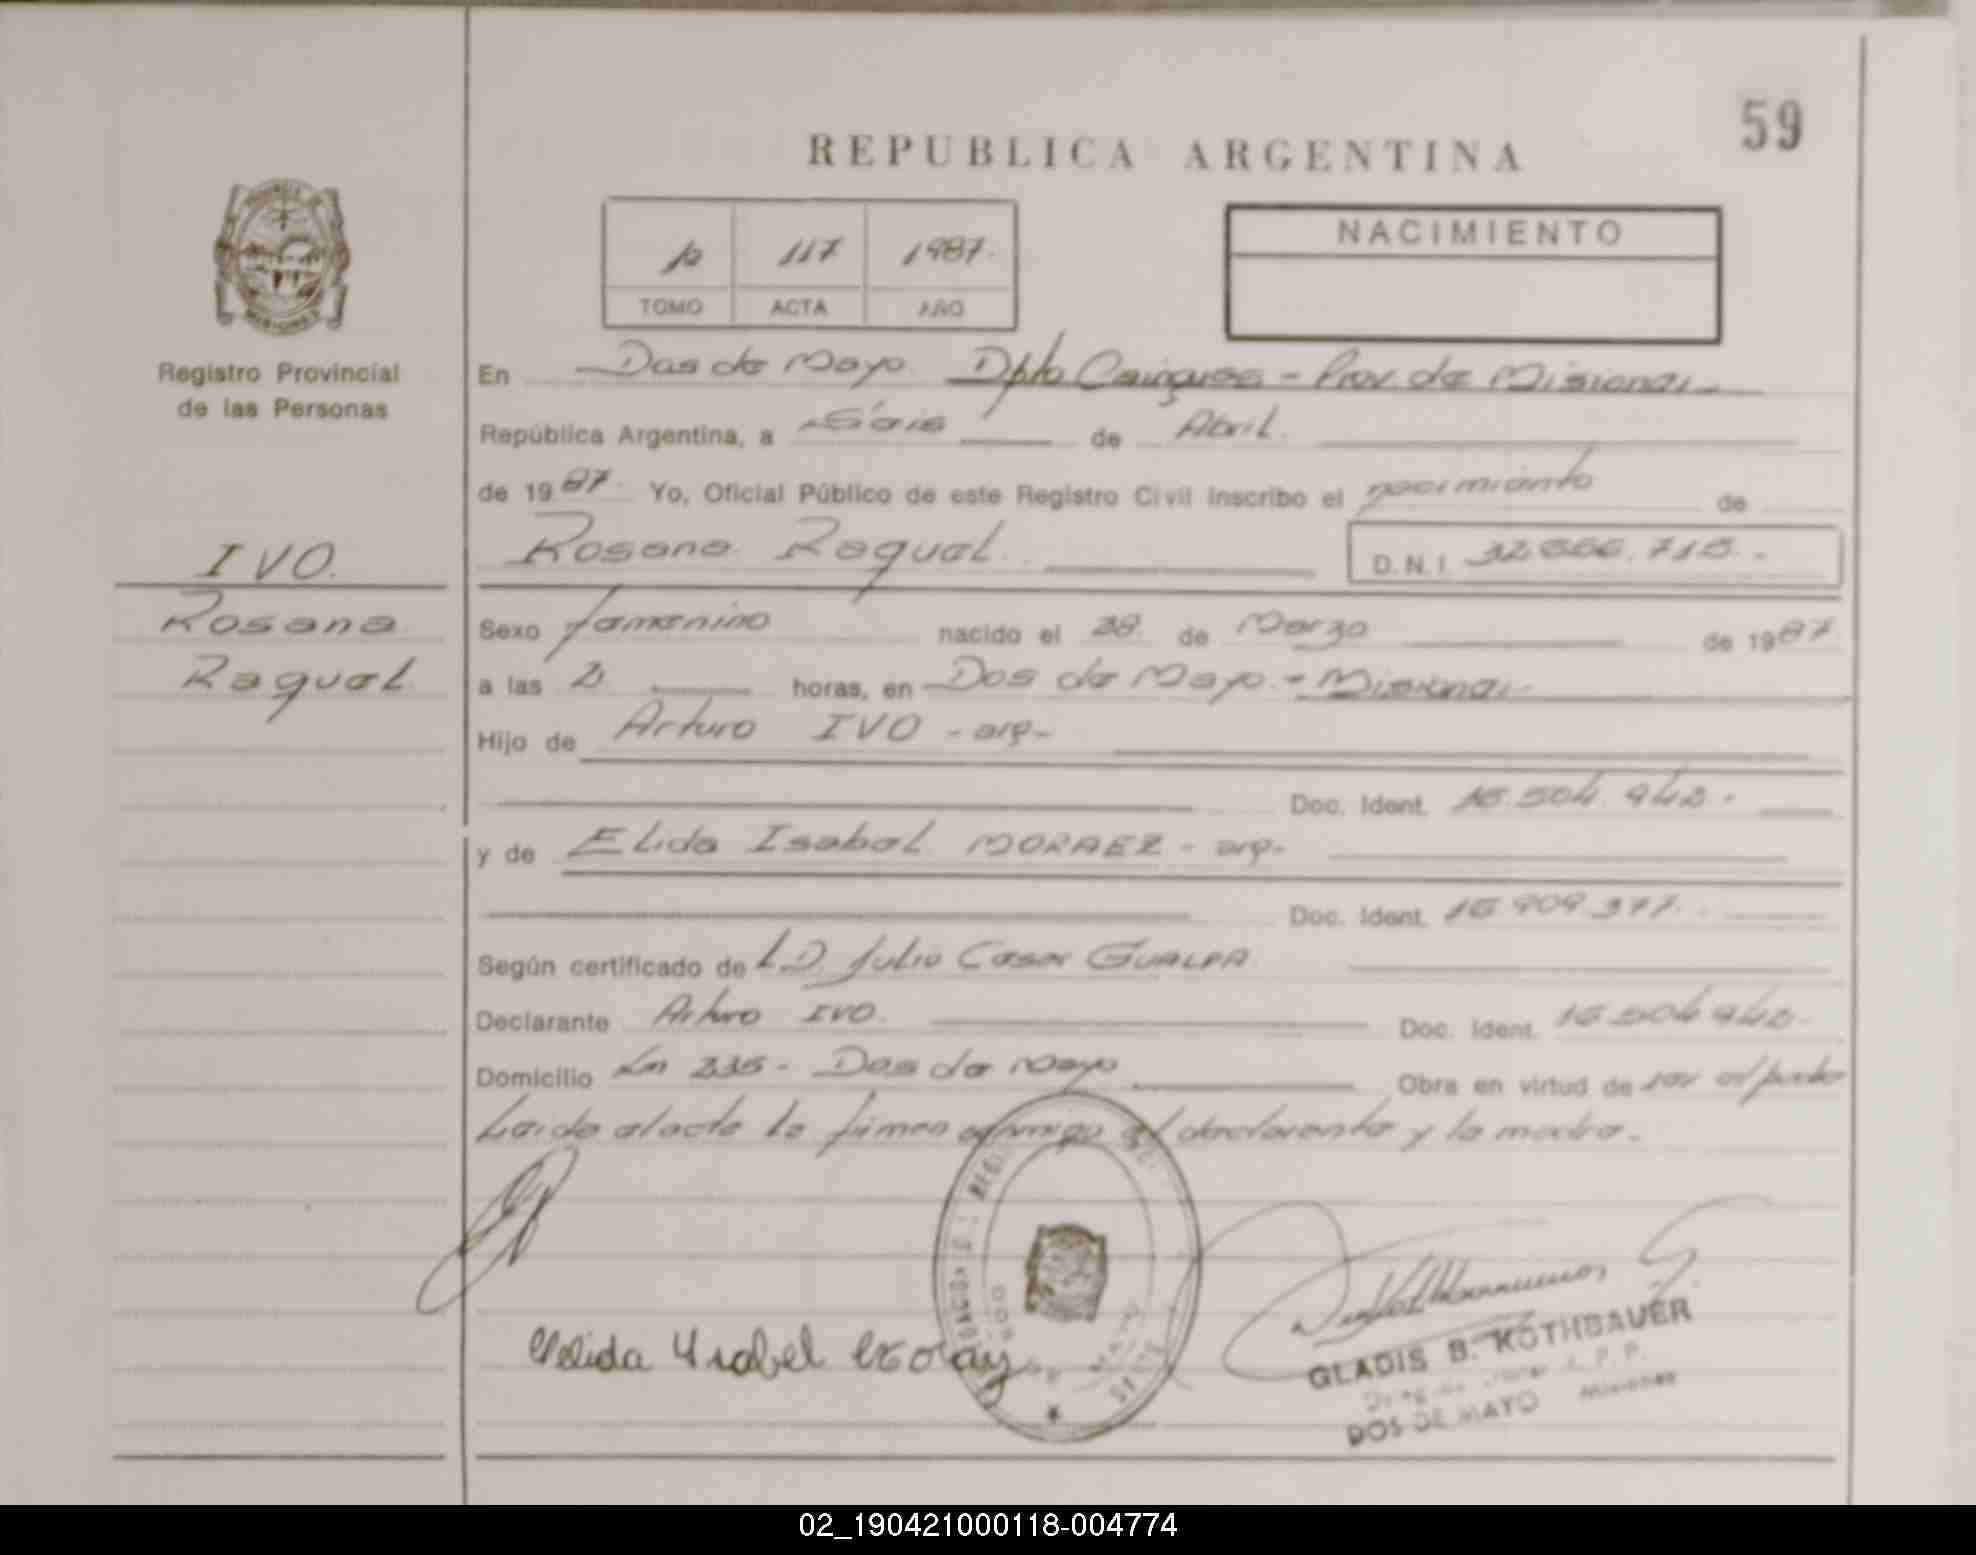 59
REPUBLICA ARGENTINA
NACIMIENTO
117 1987.
TOMO ACTA AÑO
MISIONES
Registro Provincial
de las Personas
IVO.
Rosana
Raquel
En Dos de Mayo. Dpto Cainguas - Prov. de Misiones.
República Argentina, a Seis de Abril.
de 1987. Yo, Oficial Público de este Registro Civil inscribo el nacimiento de
Rosana Raquel. D.N.I. 32.666.715.-
Sexo femenino nacido el 28 de Marzo de 1987.
a las horas, en Dos de Mayo.- Misiones.
Hijo de Arturo IVO - arg-
Doc. Ident. 16.504.942.
y de Elida Isabel MORAEZ - arg-
Doc. Ident. 16.909.377.
Según certificado de Julio Cesar GUALPA.
Declarante Arturo IVO. Doc. Ident. 16.504.942.
Domicilio Ln 235- Dos de Mayo Obra en virtud de ser el padre
Leida el acta la firman conmigo el declarante y la madre.-
Isabel
GLADIS B. KOTHBAUER
DOS DE MAYO Misiones
02_190421000118-004774